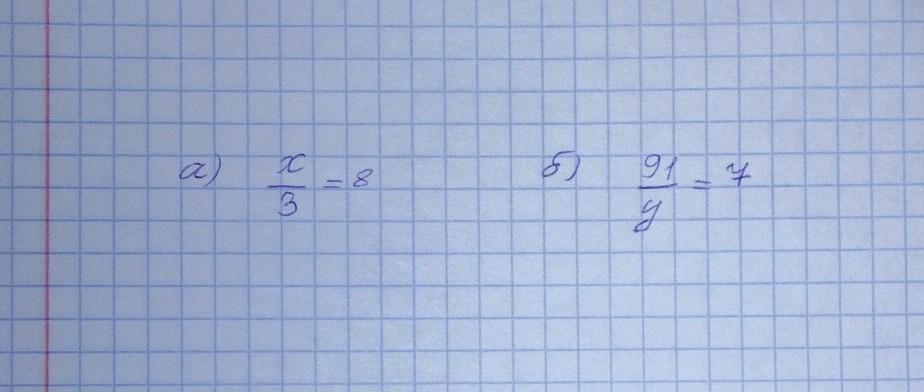 а) x/3 = 8 б) 91/y = 7